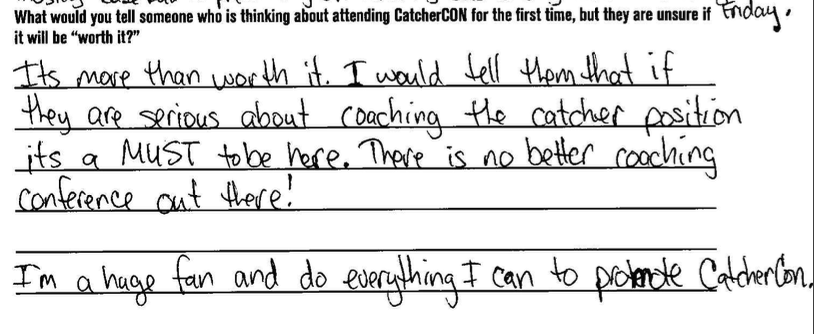 Friday.
What would you tell someone who is thinking about attending CatcherCON for the first time, but they are unsure if
it will be “worth it?”
Its more than worth it. I would tell them that if
they are serious about coaching the catcher position
its a MUST to be here. There is no better coaching
conference out there!
I'm a huge fan and do everything I can to promote CatcherCon.